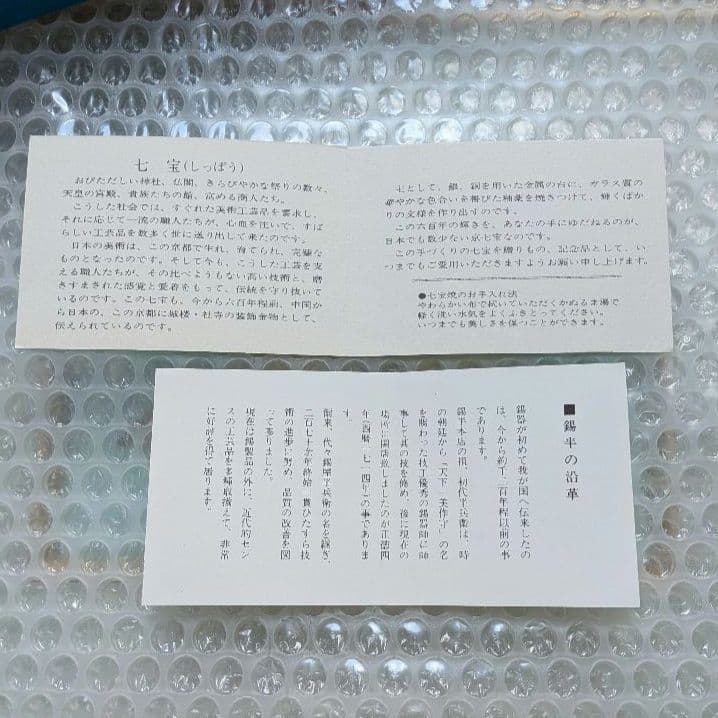 七 宝(しっぽう)
おびただしい神社、仏閣、きらびやかな祭りの数々、
天皇の宮殿、貴族たちの館、富める商人たち。
こうした社会では、すぐれた美術工芸品を需求し、
それに応じて一流の職人たちが、心血を注いで、すば
らしい工芸品を数多く世に送り出して来たのです。
日本の美術は、この京都で生れ、育てられ、完璧な
ものとなったのです。そして今も、こうした工芸を支
える職人たちが、その比べようもない高い技術と、磨
きすまされた感覚と愛着をもって、伝統を守り抜いて
いるのです。この七宝も、今から六百年程前、中国か
ら日本の、この京都に城楼・社寺の装飾金物として、
伝えられているのです。
七として、銀、銅を用いた金属の台に、ガラス質の
華やかな色合いを帯びた釉薬を焼きつけて、輝くばか
りの文様を作り出すのです。
この六百年の輝きを、あなたの手にゆだねるのが、
日本でも数少ない京七宝なのです。
この手づくりの七宝を贈りもの、記念品として、い
つまでもご愛用いただきますようお願い申し上げます。
●七宝焼のお手入れ法
やわらかい布で拭いていただくかぬるま湯で
軽く洗い水気をよくふきとってください。
いつまでも美しさを保つことができます。
■錫半の沿革
錫器が初めて我が国へ伝来したの
は、今から約千二百年程以前の事
であります。
錫半本店の祖、初代半兵衛は、時
の朝廷から「天下一美作守」の名
を賜わった技工優秀の錫器師に師
事して其の技を修め、後に現在の
場所に開店致しましたのが正徳四
年(西暦一七一四年)の事でありま
す。
爾来、代々錫屋半兵衛の名を継ぎ、
二百七十余年終始一貫ひたすら技
術の進歩に努め、品質の改善を図
って参りました。
現在は錫製品の外に、近代的セン
スの工芸品を多種取揃えて、非常
に好評を得て居ります。